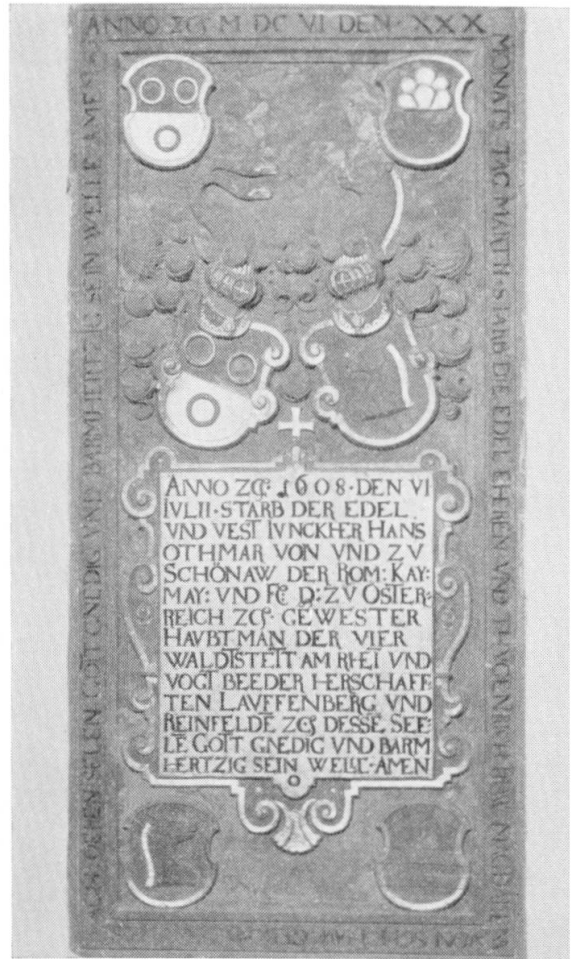 ANNO ZC MDCVI DEN · XXX
MONATS TAG MARTII · STARB DIE EDEL EHREN VND
GOTT GNEDIG VND BARMHERTZIG SEIN WELLE AMEN
ANNO ZC 1608 · DEN VI
IVLII · STARB DER EDEL
VND VEST IVNCKHER HANS
OTHMAR VON VND ZV
SCHÖNAW DER ROM: KAY:
MAY: VND FC D: ZV OSTER-
REICH ZC · GEWESTER
HAVBTMAN DER VIER
WALDTSTETT AM RHEI VND
VOGT BEEDER HERSCHAFF-
TEN LAVFFENBERG VND
REINFELDE ZC DESSE SEE-
LE GOTT GNEDIG VND BARM
HERTZIG SEIN WELLE · AMEN